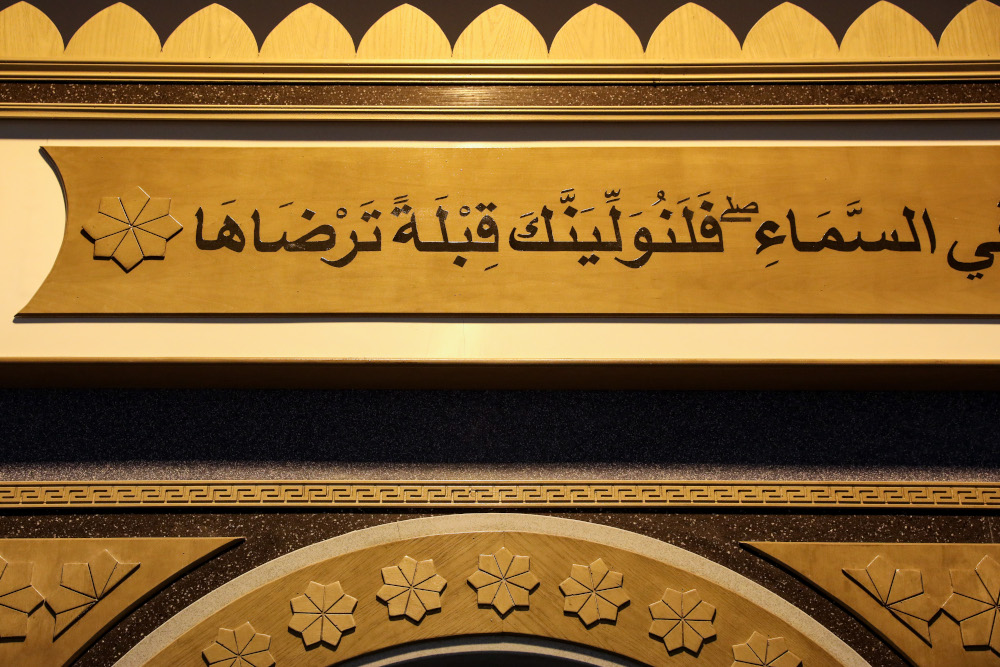 في السَّمَاءِ ۖ فَلَنُوَلِّيَنَّكَ قِبْلَةً تَرْضَاهَا